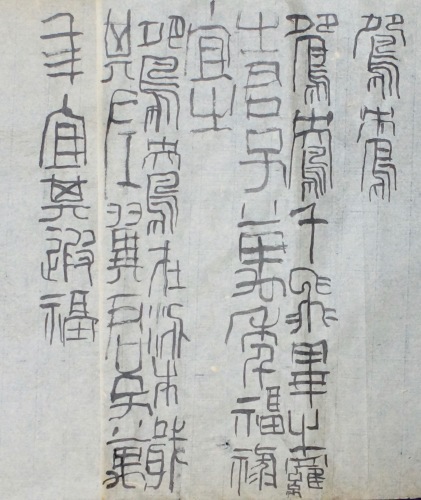 鴛鴦
鴛鴦于飛畢之羅
之君子萬年福祿
宜之
鴛鴦在梁戢
其左翼君子萬
年宜其遐福